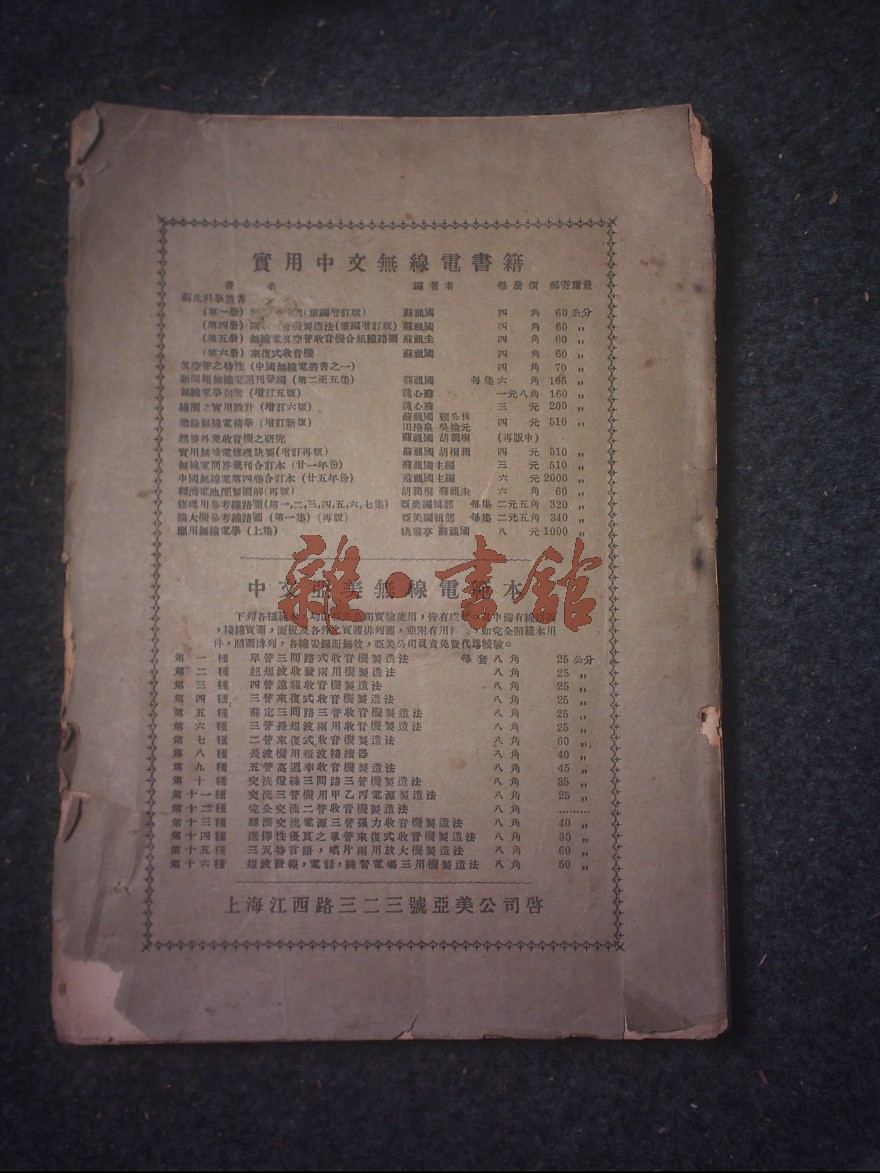 實用中文無線電書籍
書 名 編著者 每册價 郵寄重量
蘇氏科學叢書
(第一册) (重編增訂版) 蘇祖國 四角 60 公分
(第四册) 機製造法(重編增訂版) 蘇祖國 四角 60 〃
(第五册) 無線電眞空管收音機合組線路圖 蘇祖圭 四角 60 〃
(第六册) 來復式收音機 蘇祖國 四角 60 〃
眞空管之特性 (中國無線電叢書之一) 四角 70 〃
新聞報無線電週刊彙編 (第二至五集) 蘇祖國 每集六角 165 〃
無線電學 (增訂五版) 魏心蘇 一元八角 160 〃
線圈之實用設計 (增訂六版) 三元 200 〃
無線電精華 (增訂新版) 蘇祖國 顧公林 田浩泉 吳掄元 四元 510 〃
超等外差收音機之研究 蘇祖國 胡潤桐 (再版中)
實用無線電修理訣要(增訂再版) 蘇祖國 胡桐潤 四元 510 〃
無線電問答彙刊合訂本 (廿一年份) 蘇祖國主編 三元 510 〃
中國無線電第四卷合訂本 (廿五年份) 蘇祖國主編 六元 2000 〃
經濟電池 圖解(再版) 胡潤桐 蘇祖圭 六角 60 〃
修理用參考線路圖(第一,二,三,四,五,六,七集) 亞美編輯部 每集二元五角 320 〃
擴大機參考線路圖 (第一集) (再版) 亞美編輯部 每集二元五角 340 〃
應用無線電學 (上集) 蘇祖國 八元 1000 〃
中文亞美無線電範本
雜·書館
下列各種範本,均由 公司實驗使用,皆有 中備有線路圖
,接線實圖,面板及各件之實體排列圖,並附有用件 如完全照範本用
件,照圖排列,各線妥歸而無效,亞美公司負責免費代爲校驗。
第一種 單管三同路式收音機製造法 每套八角 25 公分
第二種 超短波收發兩用機製造法 八角 25 〃
第三種 四管遠程收音機製造法 八角 25 〃
第四種 三管來復式收音機製造法 八角 25 〃
第五種 蘇定三同路三管收音機製造法 八角 25 〃
第六種 三管長短波兩用收音機製造法 八角 25 〃
第七種 二管來復式收音機製造法 八角 60 〃
第八種 長波機用短波接續器 八角 40 〃
第九種 五管高週率收音機製造法 八角 45 〃
第十種 交流燈絲三同路三管機製造法 八角 35 〃
第十一種 交流三管機用甲乙丙電源製造法 八角 25 〃
第十二種 完全交流二管收音機製造法 八角 ………
第十三種 經濟交流電源三管强力收音機製造法 八角 40 〃
第十四種 選擇性優良之單管來復式收音機製造法 八角 30 〃
第十五種 三瓦特言語,唱片兩用放大機製造法 八角 60 〃
第十六種 短波發報,電話,練習電碼三用機製造法 八角 50 〃
上海江西路三二三號亞美公司啓